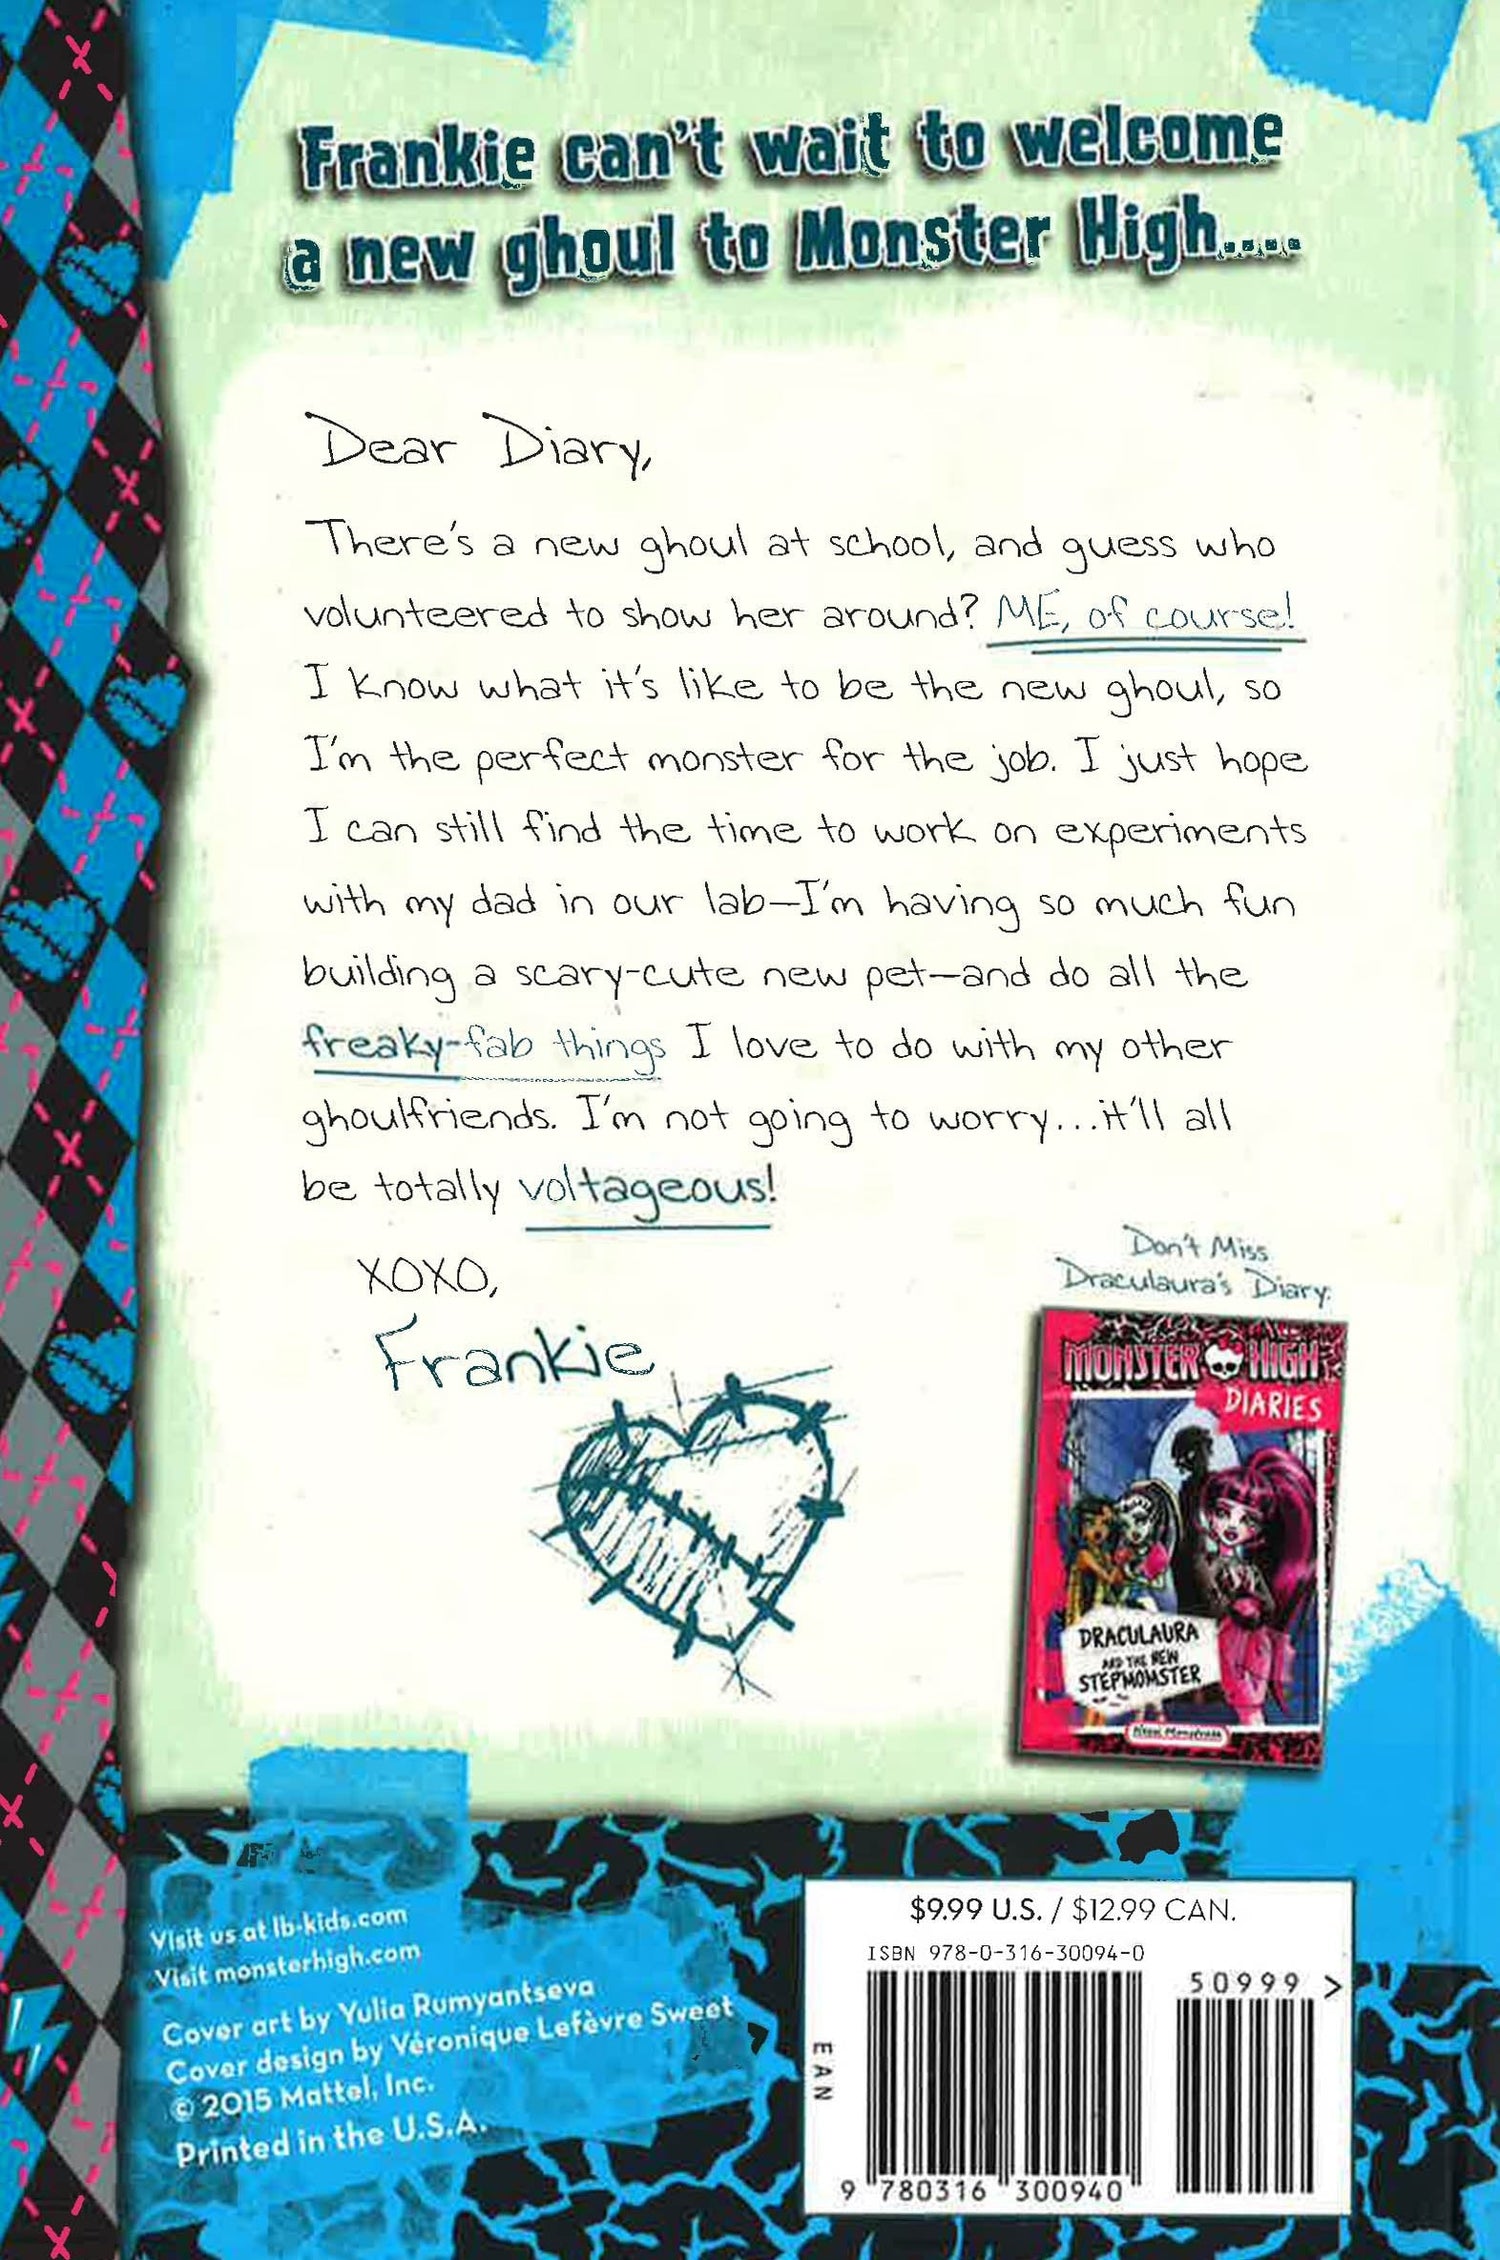 Frankie can't wait to welcome
a new ghoul to Monster High....
Dear Diary,
There's a new ghoul at school, and guess who
volunteered to show her around? ME, of course!
I know what it's like to be the new ghoul, so
I'm the perfect monster for the job. I just hope
I can still find the time to work on experiments
with my dad in our lab—I'm having so much fun
building a scary-cute new pet—and do all the
freaky-fab things I love to do with my other
ghoulfriends. I'm not going to worry...it'll all
be totally voltageous!
XOXO,
Frankie
Don't Miss
Draculaura's Diary:
MONSTER HIGH
DIARIES
DRACULAURA
AND THE NEW
STEPMOMSTER
Nessi Monstrata
Visit us at lb-kids.com
Visit monsterhigh.com
Cover art by Yulia Rumyantseva
Cover design by Véronique Lefèvre Sweet
© 2015 Mattel, Inc.
Printed in the U.S.A.
$9.99 U.S. / $12.99 CAN.
ISBN 978-0-316-30094-0
50999 >
EAN
9 780316 300940